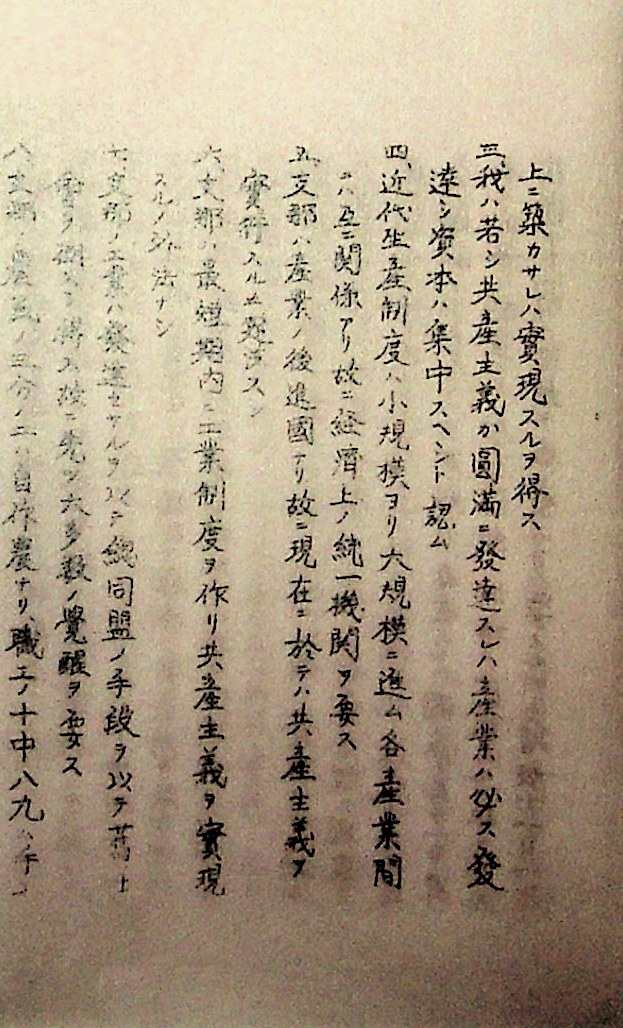 上ニ築カサレハ實現スルヲ得ス
三、我ハ若シ共産主義カ圓滿ニ發達スレハ産業ハ必ス發
達シ資本ハ集中スヘシト認ム
四、近代生産制度ハ小規模ヨリ大規模ニ進ム各産業間
ニハ互ニ関係アリ故ニ経濟上ノ統一機関ヲ要ス
五、支那ハ産業ノ後進國ナリ故ニ現在ニ於テハ共産主義ヲ
實行スルニ適セス
六、支那ハ最短期内ニ工業制度ヲ作リ共産主義ヲ實現
スルノ外法ナシ
七、支那ノ工業ハ發達セサルヲ以テ總同盟ノ手段ヲ以テ
ヲ得ス故ニ先ツ大多数ノ覺醒ヲ要ス
八、支那ノ農民ノ三分ノ二ハ自作農ナリ、職工ノ十中八九ハ手